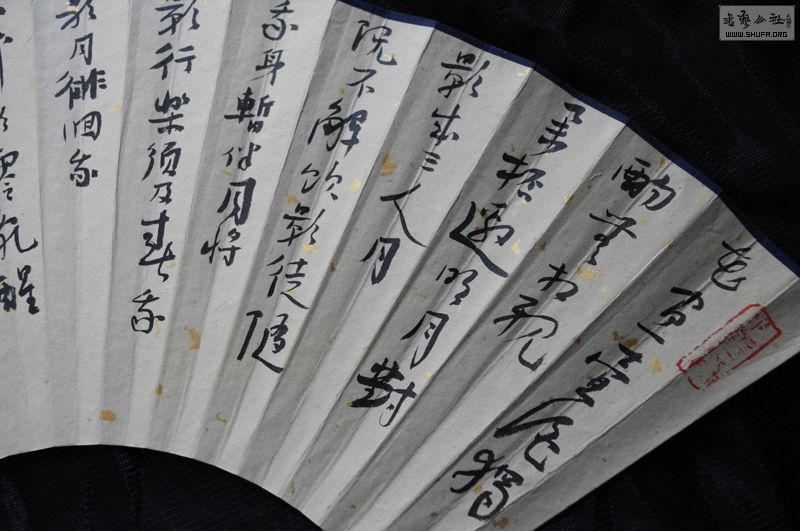 花壺酒獨
酌無相親
舉杯邀明月對
影成三人月
既不解飲影徒隨
我身暫伴月將
影行樂須及春我
歌月徘徊我
舞影零亂醒
WWW.SHUFA.ORG